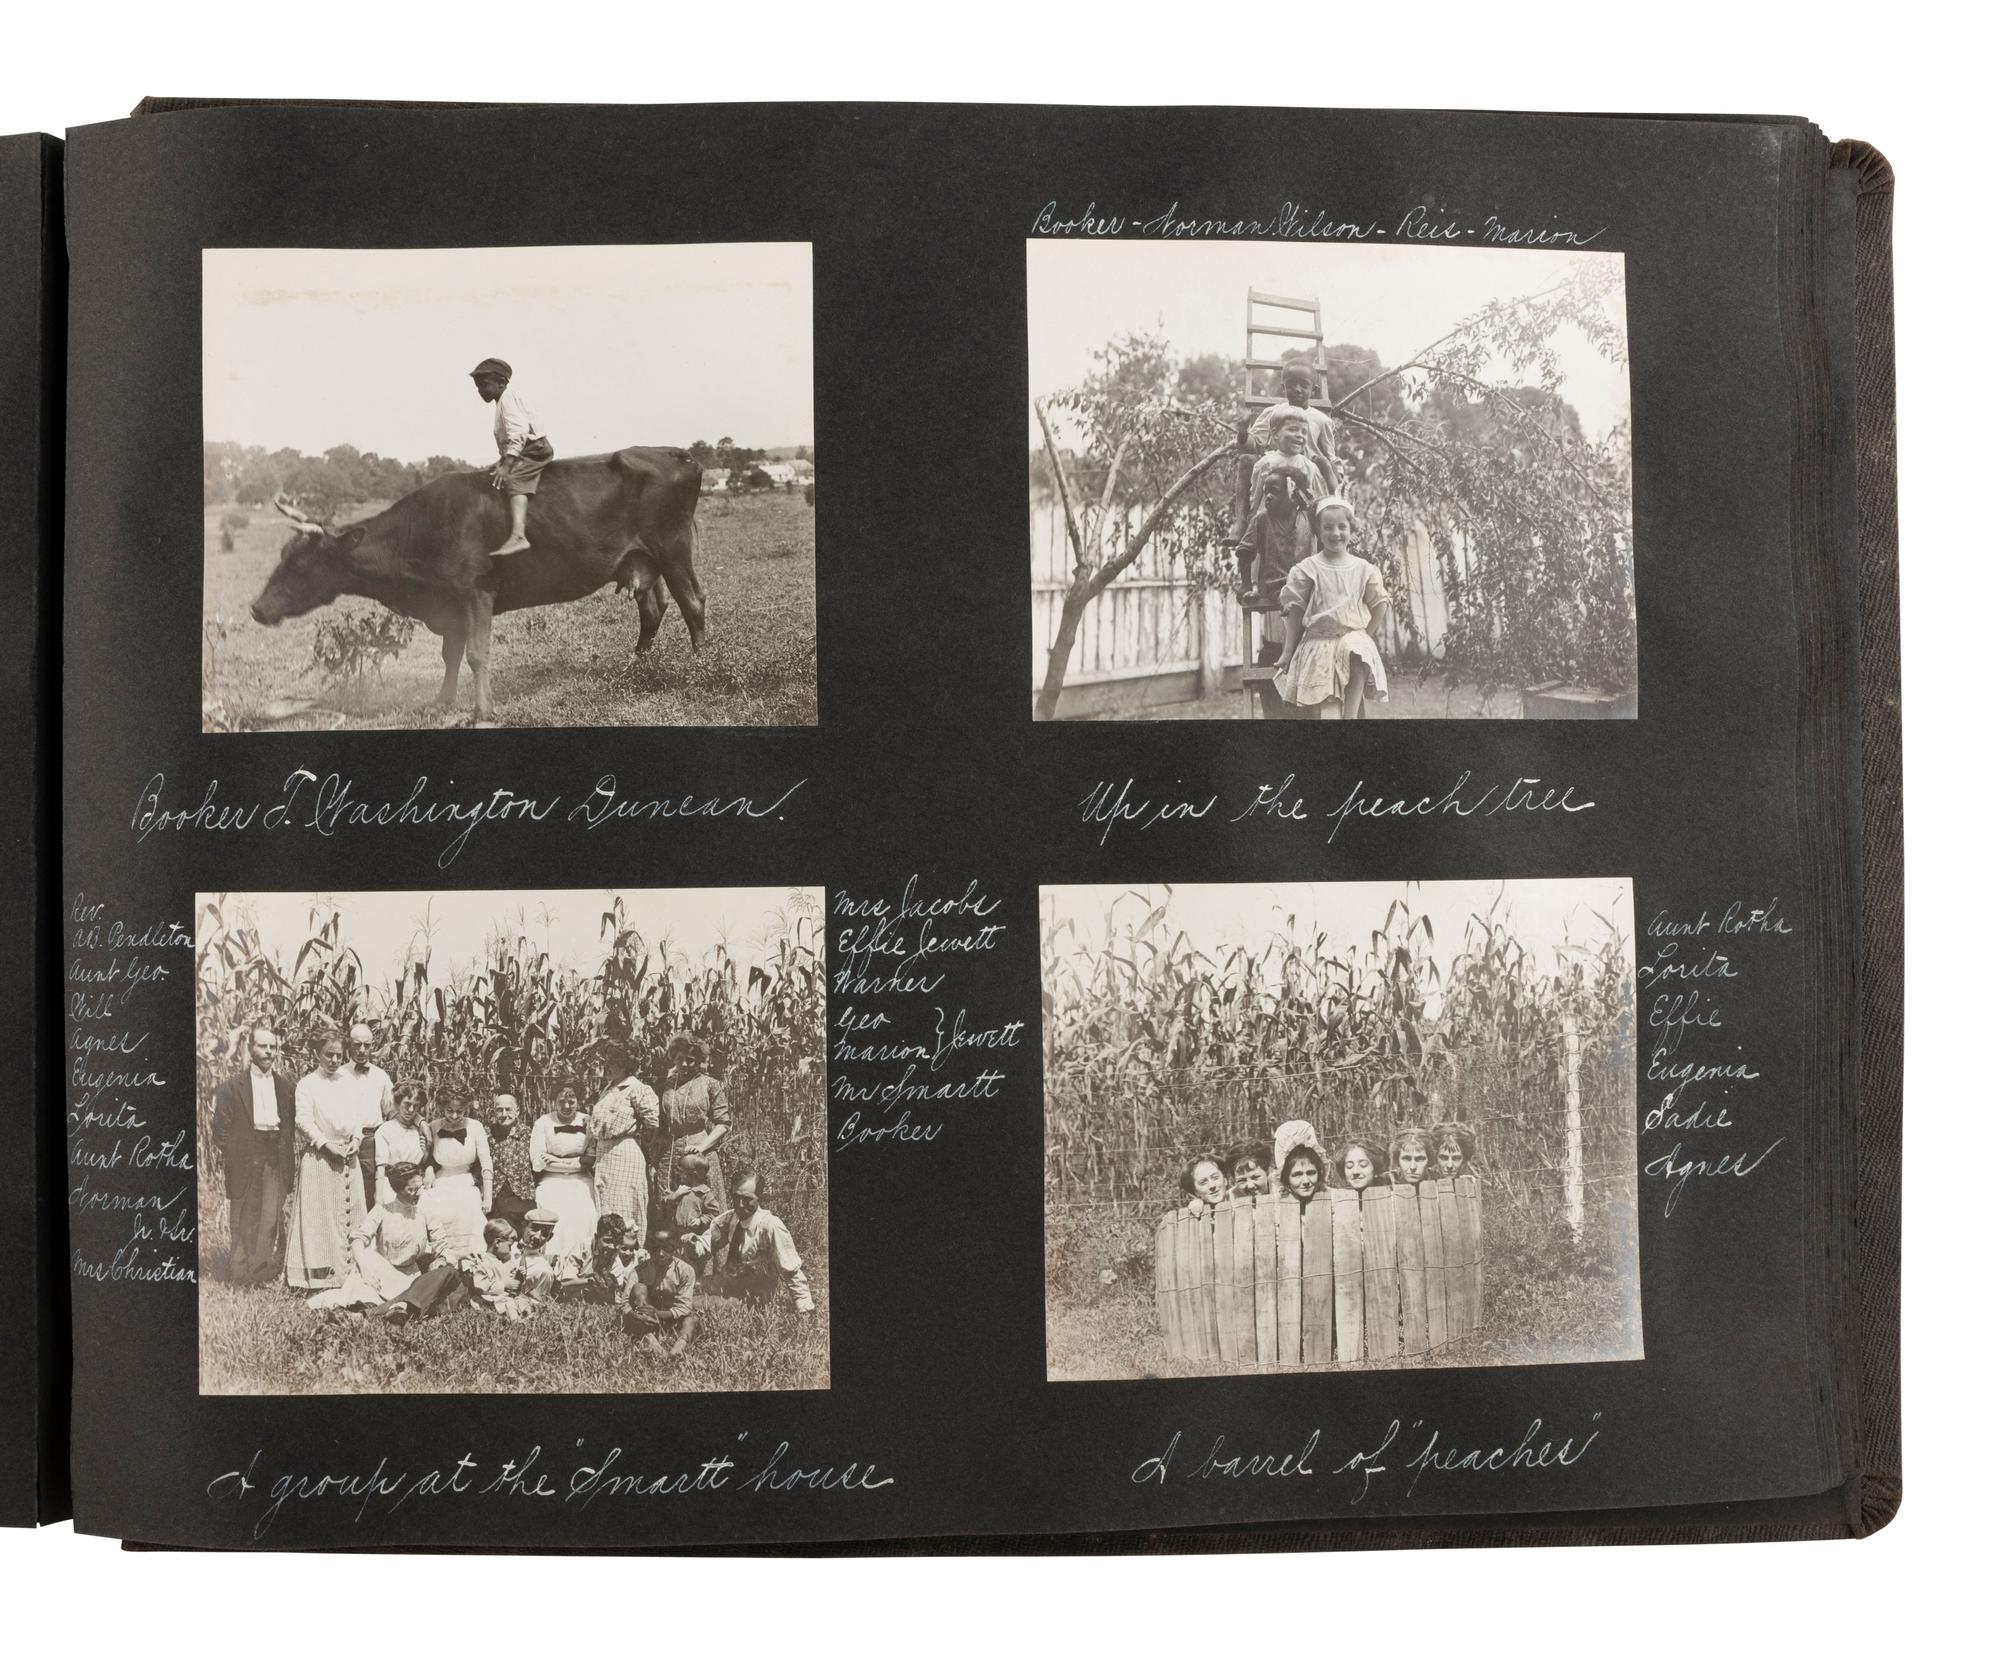 Booker - Norman Wilson - Reis - Marion
Booker T. Washington Duncan.
Up in the peach tree
Rev.
A.B. Pendleton
Aunt Geo.
Will
Agnes
Eugenia
Lorita
Aunt Rotha
Norman
Jr. & Sr.
Mrs Christian
Mrs Jacobs
Effie Jewett
Warner
Geo
Marion } Jewett
Mr Smartt
Booker
Aunt Rotha
Lorita
Effie
Eugenia
Sadie
Agnes
A group at the "Smartt" house
A barrel of "peaches"